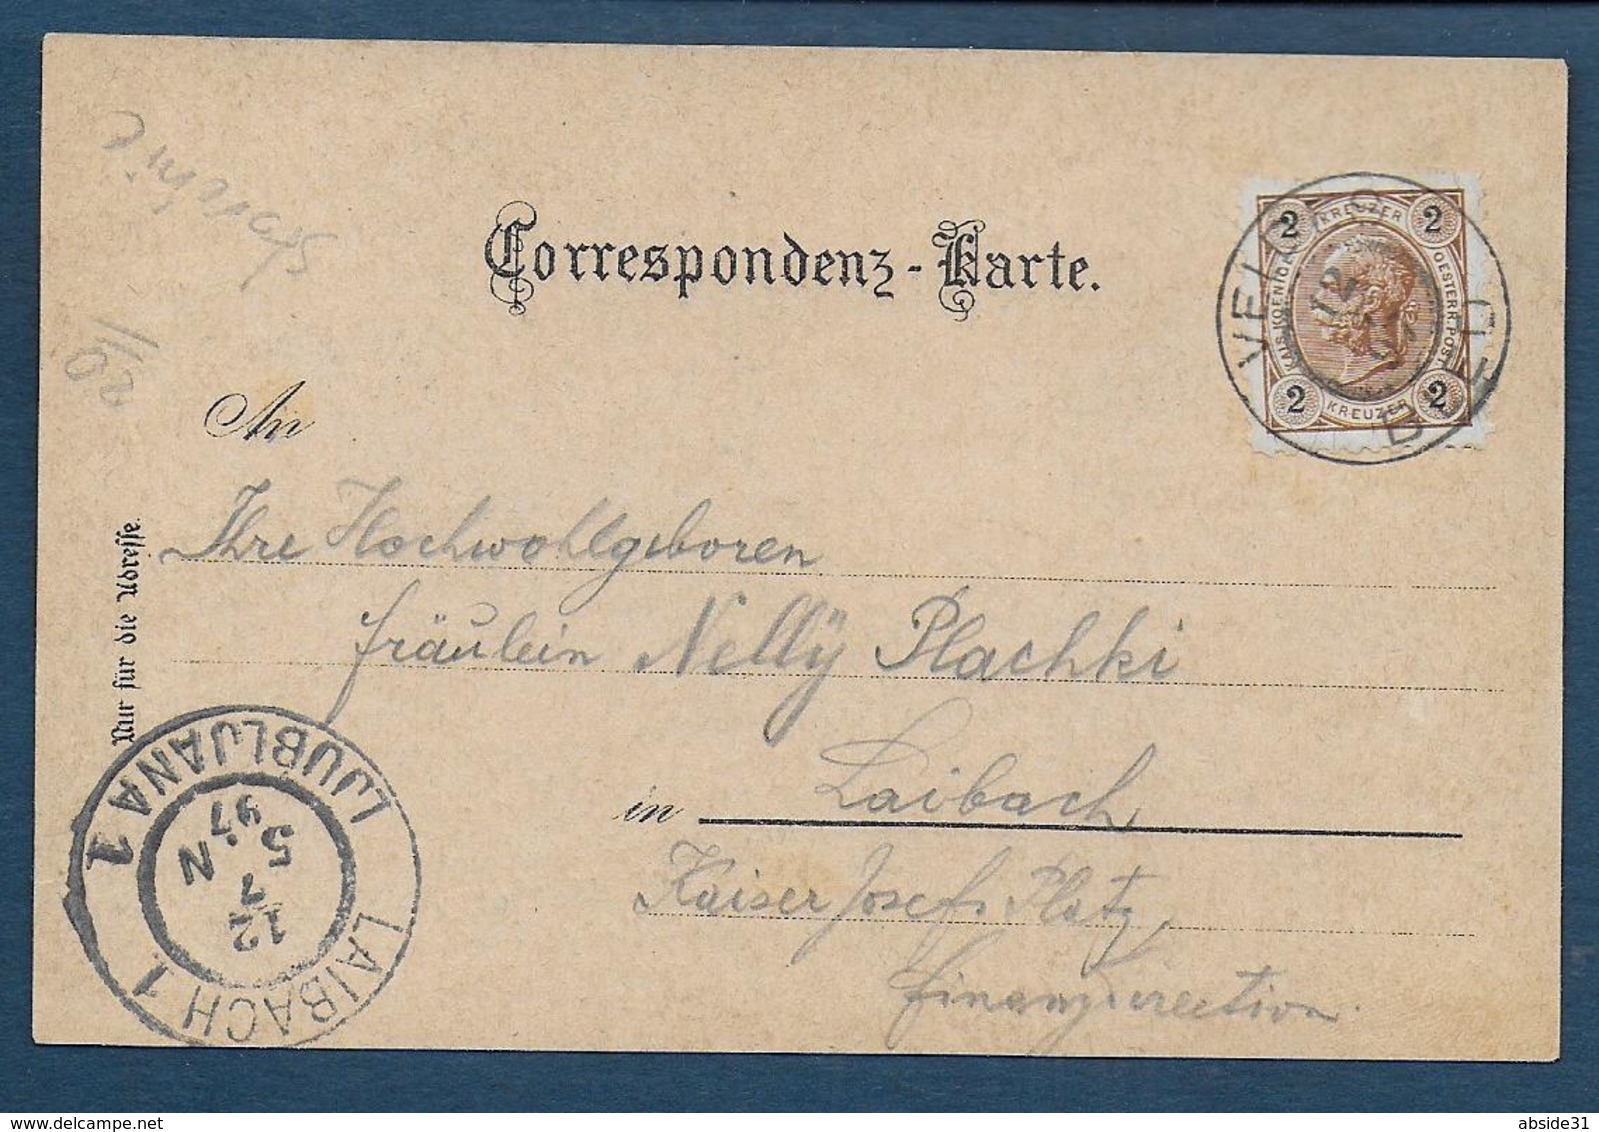 Correspondenz-Karte.
2 KREUZER 2
KAIS. KOENIGL.
OESTERR. POST
2 KREUZER 2
12
An
Nur für die Adresse.
Ihre Hochwohlgeboren
fräulein Nellÿ Plachki
in Laibach
Kaiser Josefs Platz,
Finanzdirection.
LAIBACH 1
LJUBLJANA 1
12
7
5 N
97
delcampe.net
abside31